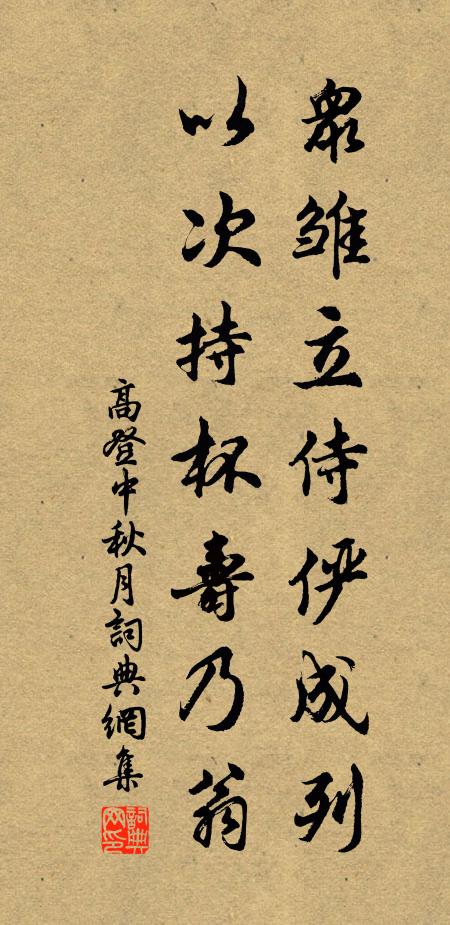 衆雛立侍儼成列
以次持杯壽乃翁
高登中秋月詞典網集
詞典网印